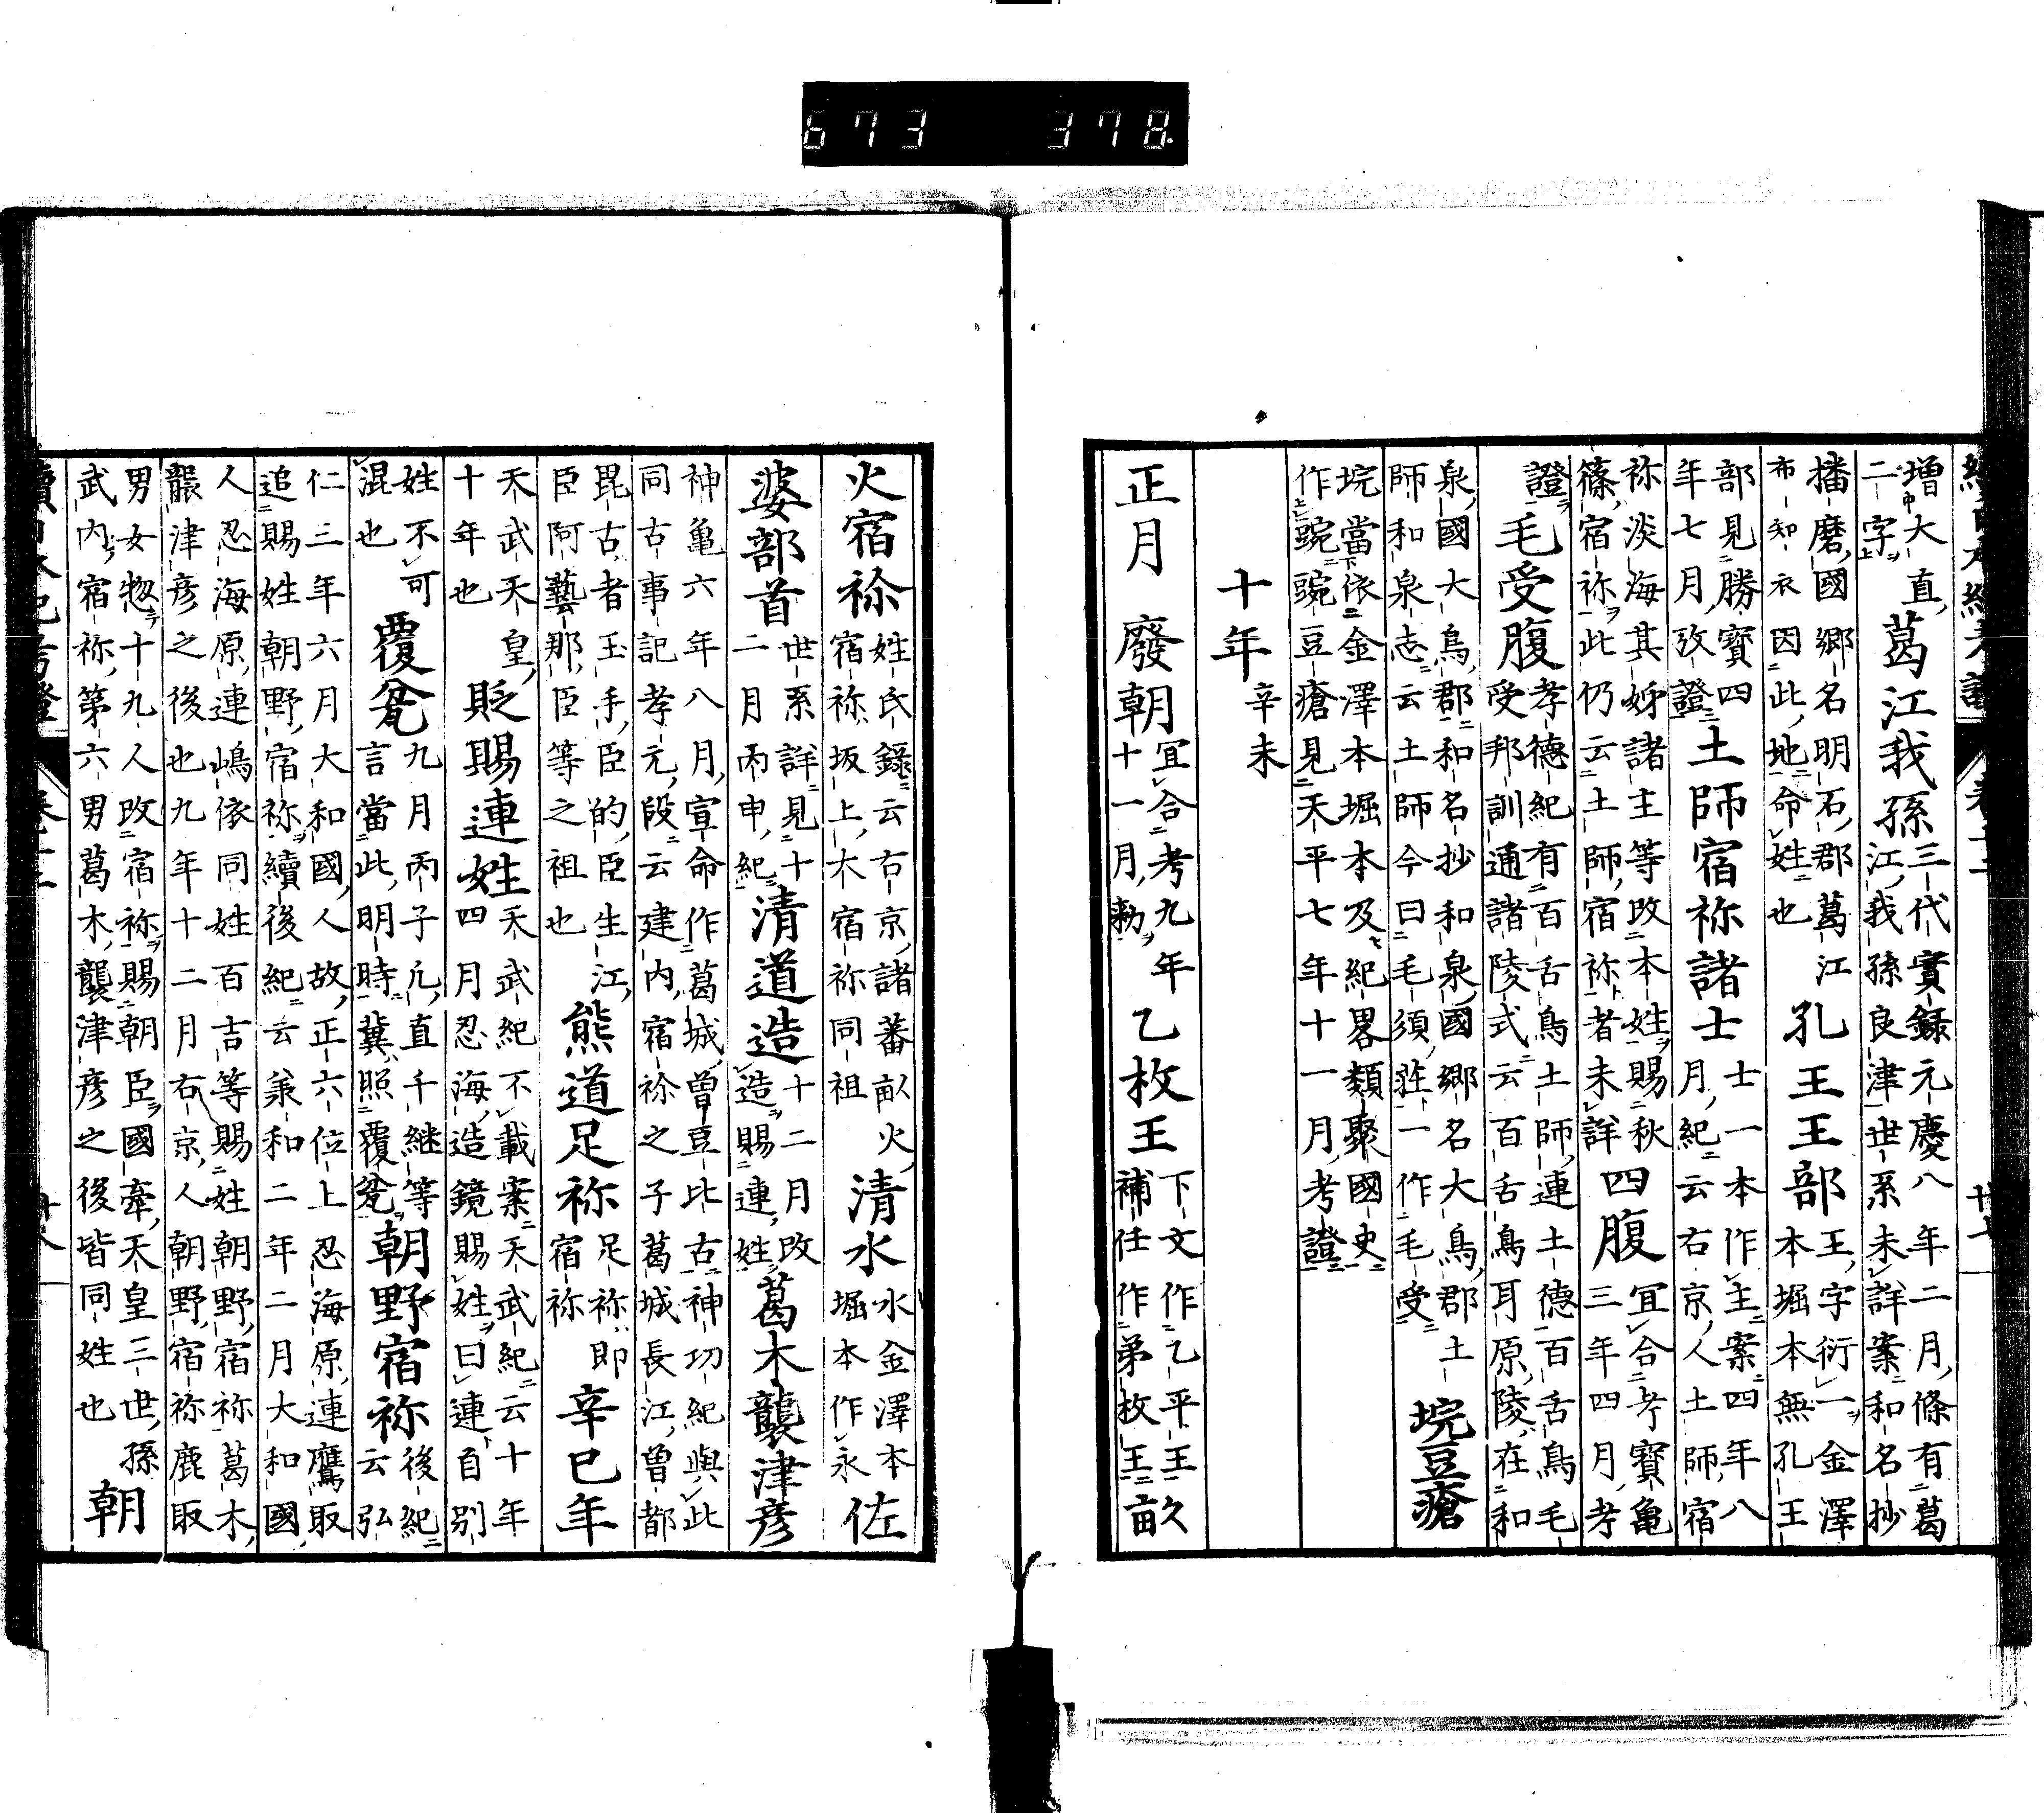 673 378
增大直葛江我孫三代實録元慶八年二月條有葛
二字江我孫良津世系未詳案和名抄
播磨國郷名明石郡葛江孔王王部王字衍一金澤
布知衣因此地命姓也本堀本無孔王
部見勝寶四土師宿祢諸士士一本作主案四年八
年七月攷證月紀云右京人土師宿
祢淡海其姉諸主等改本姓賜秋四腹宜合考寶亀
篠宿祢此仍云土師宿祢者未詳三年四月考
證毛受腹孝德紀有百舌鳥土師連土德百舌鳥毛
受邦訓通諸陵式云百舌鳥耳原陵在和
泉國大鳥郡和名抄和泉國郷名大鳥郡土
師和泉志云土師今曰毛須莊一作毛受埦豆瘡
埦當依金澤本堀本及紀畧類聚國史
作豌豌豆瘡見天平七年十一月考證
十年辛未
正月廢朝宜合考九年十一月勅乙枚王下文作乙平王久補任作弟枚王畝
火宿祢姓氏録云右京諸蕃畝火宿祢坂上大宿祢同祖清水水金澤本堀本作永佐
婆部首世系詳見十二月丙申紀清道造十二月改造賜連姓葛木襲津彦
神亀六年八月宣命作葛城曽豆比古神功紀與此
同古事記孝元段云建内宿祢之子葛城長江曽都
毘古者玉手臣的臣生江臣阿藝那臣等之祖也熊道足祢足祢即宿祢辛巳年
天武天皇十年也貶賜連姓天武紀不載案天武紀云十年四月忍海造鏡賜姓曰連自別
姓不可混也覆瓮九月丙子凢直千継等言當此明時冀照覆瓮朝野宿祢後紀云弘
仁三年六月大和國人故正六位上忍海原連鷹取
追賜姓朝野宿祢續後紀云兼和二年二月大和國
人忍海原連嶋依同姓百吉等賜姓朝野宿祢葛木
襲津彦之後也九年十二月右京人朝野宿祢鹿取
男女惣十九人改宿祢賜朝臣國牽天皇三世孫
武内宿祢第六男葛木襲津彦之後皆同姓也朝